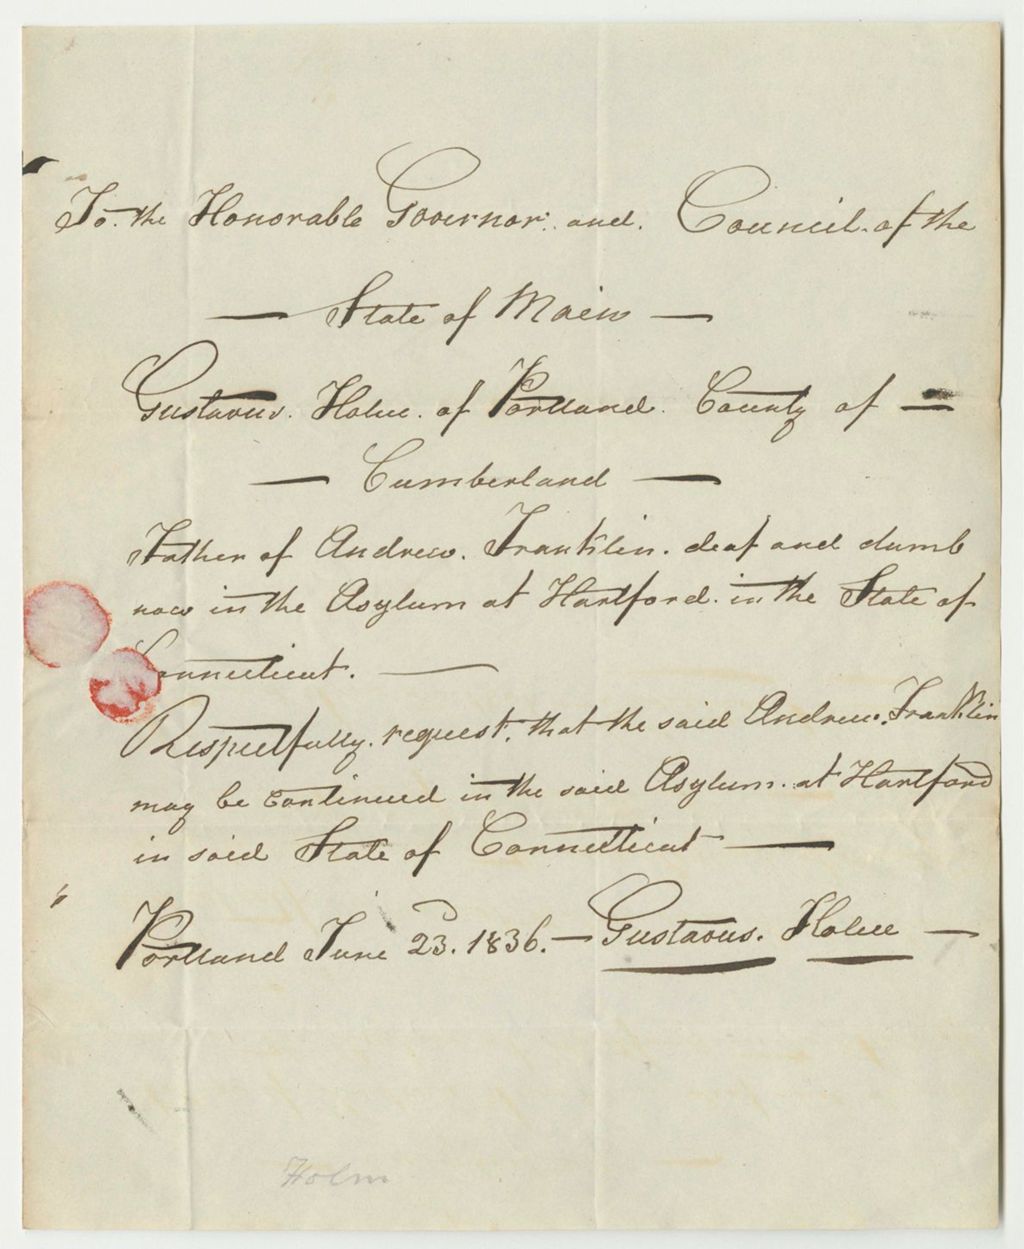 To. the Honorable Governor. and. Council. of the
— State of Maine —
Gustavus. Holm. of Portland. County of —
— Cumberland —
Father of Andrew. Franklin. deaf and dumb
now in the Asylum at Hartford. in the State of
Connecticut. —
Respectfully. request. that the said Andrew. Franklin
may be continued in the said Asylum. at Hartford
in said State of Connecticut —
Portland June 23. 1836. — Gustavus. —
Holm